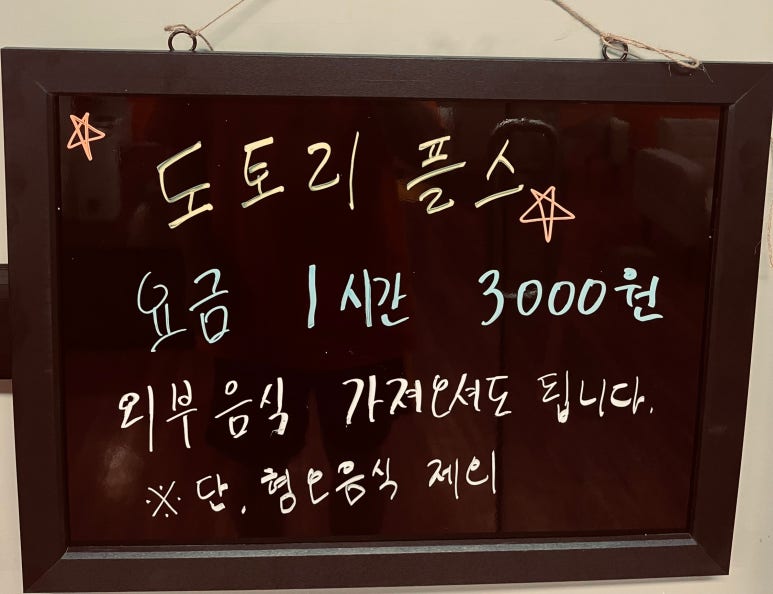 도토리 플스
요금 1시간 3000원
외부음식 가져오셔도 됩니다.
※ 단, 혐오음식 제외